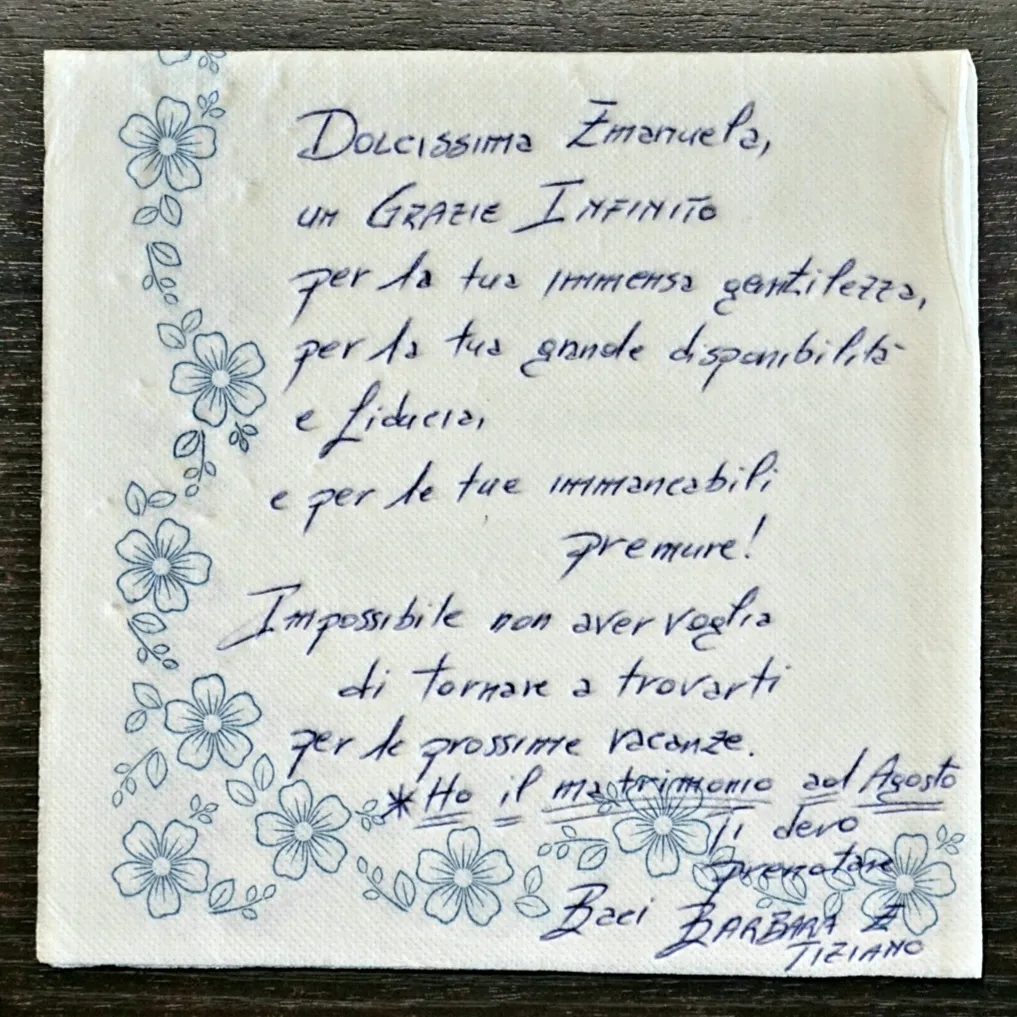 Dolcissima Emanuela,
un GRAZIE INFINITO
per la tua immensa gentilezza,
per la tua grande disponibilità
e fiducia,
e per le tue immancabili
premure!
Impossibile non aver voglia
di tornare a trovarti
per le prossime vacanze.
*Ho il matrimonio ad Agosto
Ti devo
prenotare
Baci BARBARA E
TIZIANO